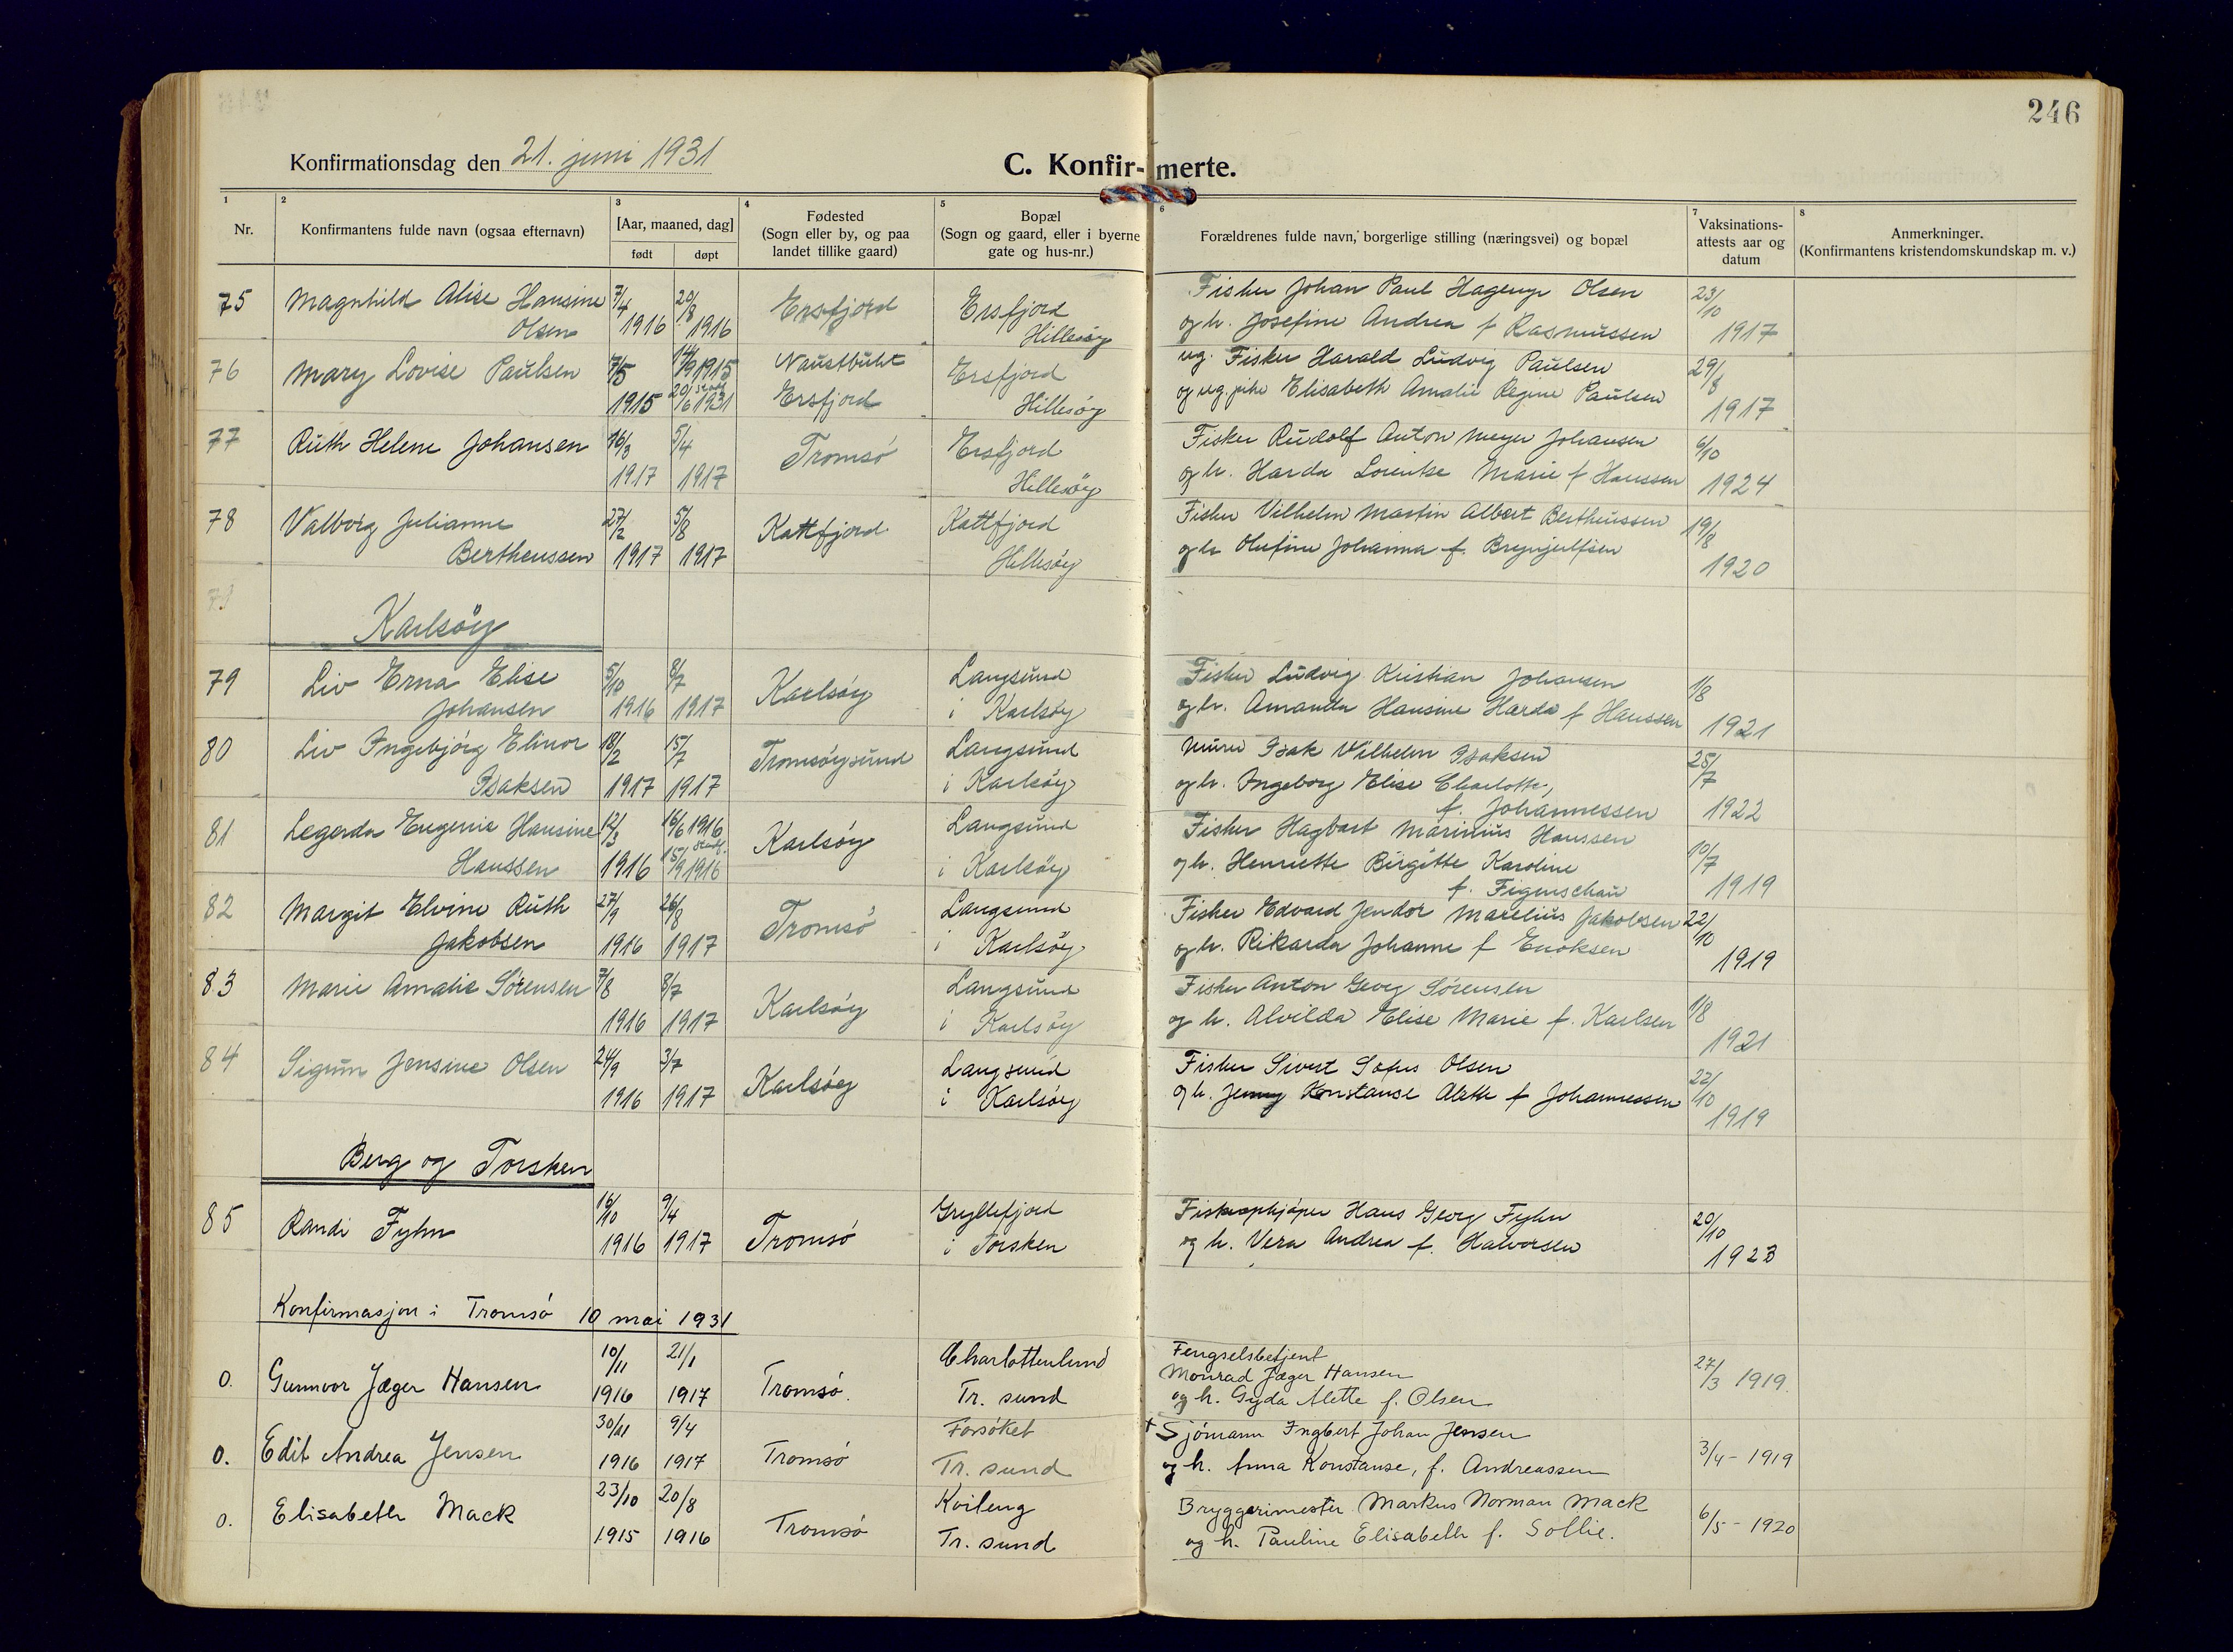 246
Konfirmationsdag den 21. juni 1931
C. Konfir-merte.
1 2 3 4 5 6 7 8
Nr.
Konfirmantens fulde navn (ogsaa efternavn)
[Aar, maaned, dag]
født døpt
Fødested
(Sogn eller by, og paa
landet tillike gaard)
Bopæl
(Sogn og gaard, eller i byerne
gate og hus-nr.)
Forældrenes fulde navn, borgerlige stilling (næringsvei) og bopæl
Vaksinations-
attests aar og
datum
Anmerkninger.
(Konfirmantens kristendomskundskap m. v.)
75 Magnhild Alise Hansine 7/4 20/8 Ersfjord Ersfjord Fisker Johan Paul Hagerup Olsen 23/10
Olsen 1916 1916 Hillesøy og h. Josefine Andrea f Rasmussen 1917
76 Mary Lovise Paulsen 7/5 14/9 1915 Naustbukt Ersfjord ug. Fisker Harald Ludvig Paulsen 29/8
1915 20/6 1931 Ersfjord Hillesøy og ug. pike Elisabeth Amalie Regine Paulsen 1917
77 Ruth Helene Johansen 16/3 5/4 Tromsø Ersfjord Fisker Rudolf Anton Meyer Johansen 6/10
1917 1917 Hillesøy og h. Harda Lorentse Marie f Hanssen 1924
78 Valborg Julianne 27/2 5/8 Kattfjord Kattfjord Fisker Vilhelm Martin Albert Bertheussen 19/8
Bertheussen 1917 1917 Hillesøy og h Olufine Johanna f. Brynjulfsen 1920
79
Karlsøy
79 Liv Erna Elise 5/10 8/7 Karlsøy Langsund Fisker Ludvig Kristian Johansen 1/8
Johansen 1916 1917 i Karlsøy og h. Amanda Hansine Harda f Hanssen 1921
80 Liv Ingebjørg Elinor 18/2 15/7 Tromsøysund Langsund Murer Isak Vilhelm Isaksen 28/7
Isaksen 1917 1917 i Karlsøy og h. Ingeborg Elise Charlotte,
f. Johannessen 1922
81 Legarda Eugenie Hansine 12/3 16/6 1916 Karlsøy Langsund Fisker Hagbart Marinius Hanssen 10/7
Hanssen 1916 15/9 1916 i Karlsøy og h. Henriette Birgitte Karoline
f. Figenschau 1919
82 Margit Elvine Ruth 27/9 26/8 Tromsø Langsund Fisker Edvard Jendor Marelius Jakobsen 22/10
Jakobsen 1916 1917 i Karlsøy og h. Rikarda Johanne f Enoksen 1919
83 Marie Amalie Sørensen 7/8 8/7 Karlsøy Langsund Fisker Anton Georg Sørensen 1/8
1916 1917 i Karlsøy og h. Alvilda Elise Marie f. Karlsen 1921
84 Sigrun Jensine Olsen 24/9 3/7 Karlsøy Langsund Fisker Sivert Sofus Olsen 22/10
1916 1917 i Karlsøy og h. Jenny Konstanse Alette f Johannessen 1919
Berg og Torsken
85 Randi Fyhn 16/10 9/4 Tromsø Gryllefjord Fiskeopkjøper Hans Georg Fyhn 20/10
1916 1917 i Torsken og h. Vera Andrea f. Halvorsen 1923
Konfirmasjon i Tromsø 10 mai 1931
Fengselsbetjent
0. Gunnvor Jæger Hansen 10/11 21/1 Tromsø. Charlottenlund Monrad Jæger Hansen 27/3 1919.
1916 1917 Tr. sund og h. Gyda Alette f. Olsen
0. Edit Andrea Jensen 30/11 9/4 Tromsø Forsøket † Sjømann Ingbert Johan Jensen 3/4 - 1919
1916 1917 Tr. sund og h. Anna Konstanse, f. Andreassen
0. Elisabeth Mack 23/10 20/8 Tromsø Kvileng Bryggerimester Markus Norman Mack 6/5 - 1920
1915 1916 Tr. sund og h. Pauline Elisabeth f. Sollie.